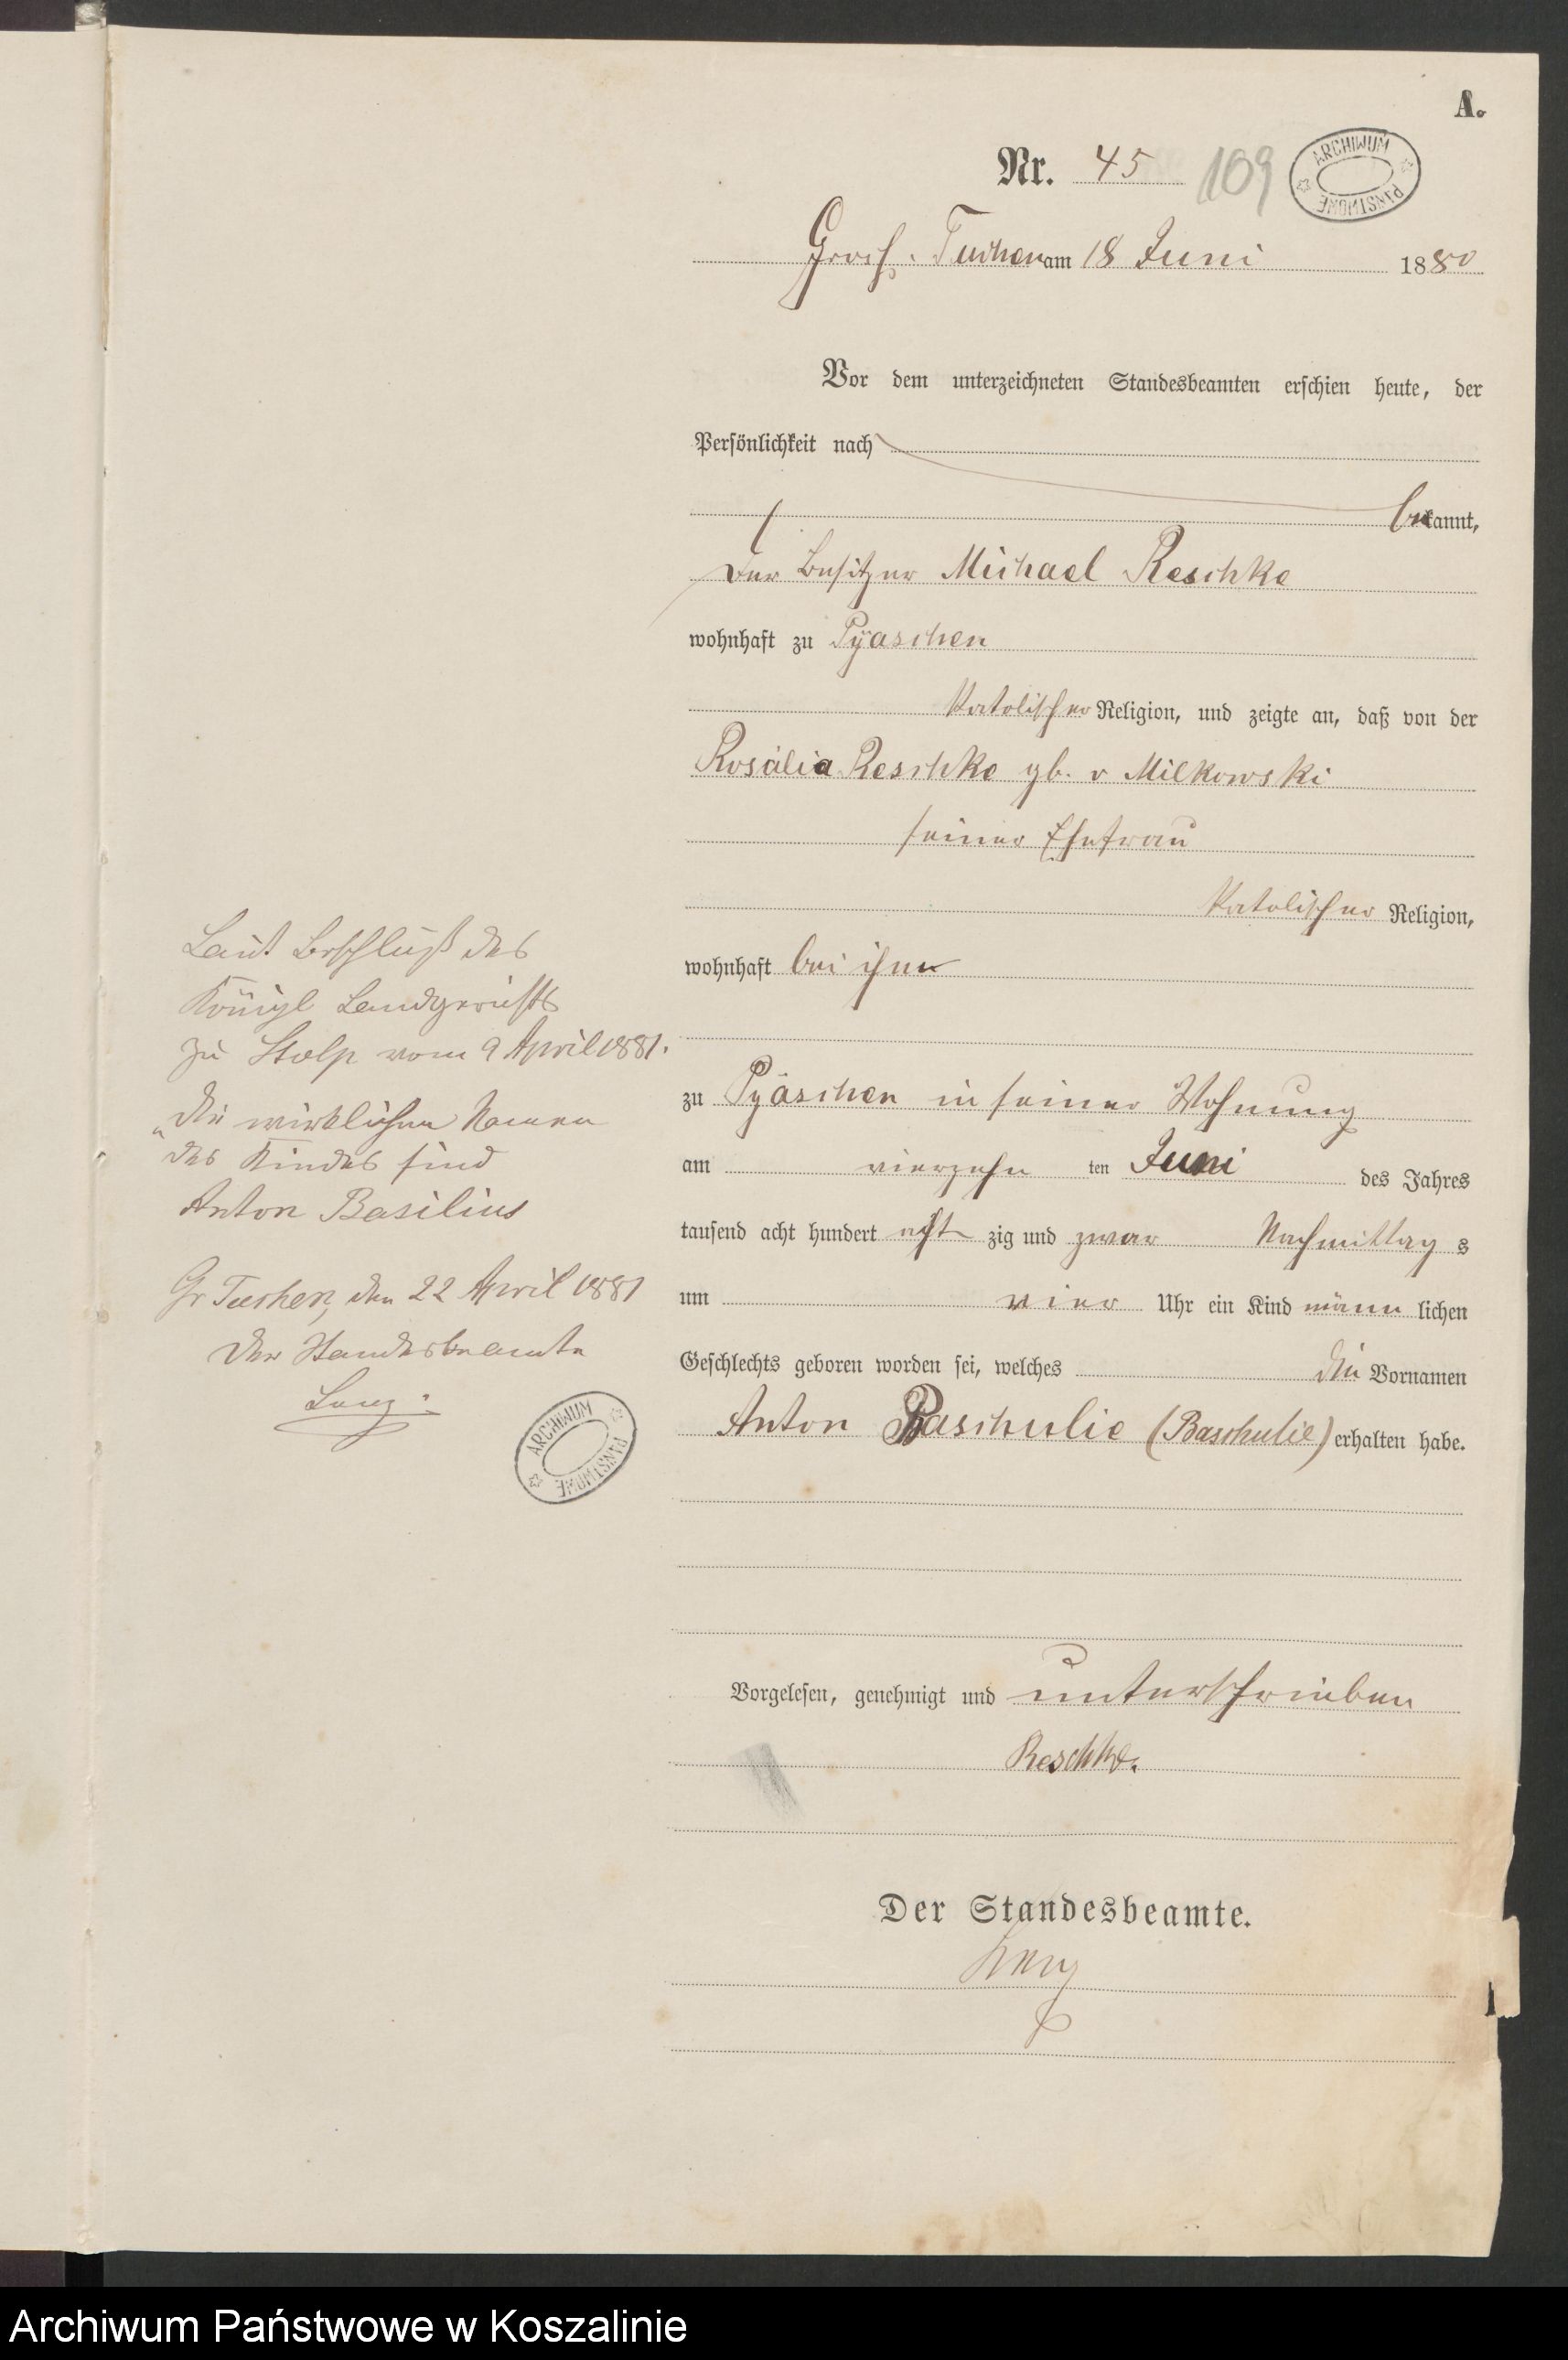 A.
Nr. 45 109
ARCHIWUM PAŃSTWOWE
Gross. Tuchen am 18 Juni 1880
Vor dem unterzeichneten Standesbeamten erschien heute, der
Persönlichkeit nach
bekannt,
der Besitzer Michael Reschke
wohnhaft zu Pyaschen
katolischer Religion, und zeigte an, daß von der
Rosalia Reschke gb. v Milkowski
seiner Ehefrau
katolischer Religion,
wohnhaft bei ihm
zu Pyaschen in seiner Wohnung
am vierzehn ten Juni des Jahres
tausend acht hundert acht zig und zwar Nachmittag s
um vier Uhr ein Kind männ lichen
Geschlechts geboren worden sei, welches die Vornamen
Anton Baschulie (Baschulie) erhalten habe.
Vorgelesen, genehmigt und unterschrieben
Reschke.
Der Standesbeamte.
Lenz
Laut Beschluß des
Königl Landgerichts
zu Stolp vom 9 April 1881.
„die wirklichen Namen
des Kindes sind
Anton Basilius
Gr Tuchen, den 22 April 1881
Der Standesbeamte
Lenz.
ARCHIWUM PAŃSTWOWE
Archiwum Państwowe w Koszalinie